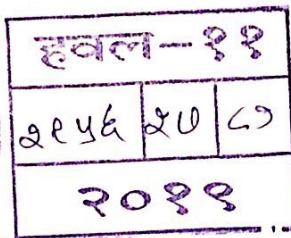 हवल-११
२१५६ २७
२०१९